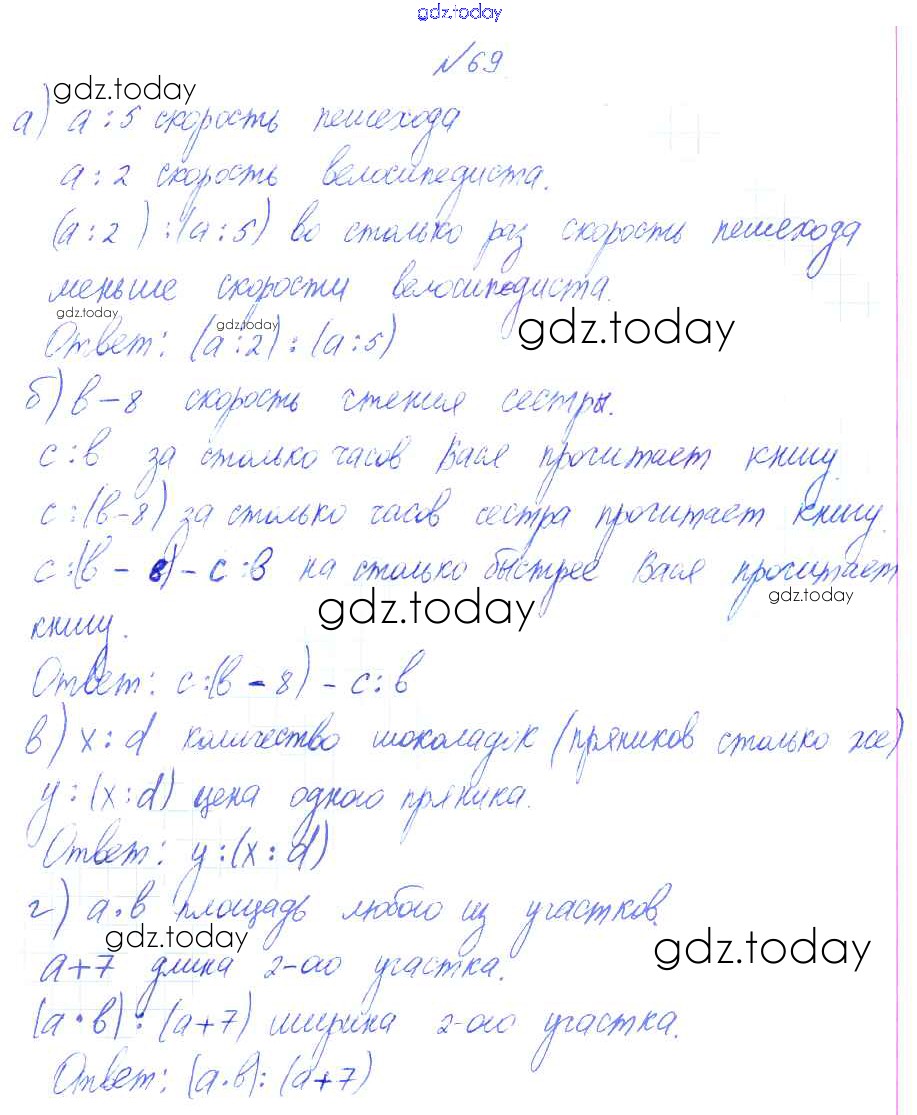 gdz.today
№69.
gdz.today
а) a:5 скорость пешехода
a:2 скорость велосипедиста.
(a:2):(a:5) во столько раз скорость пешехода
меньше скорости велосипедиста.
gdz.today gdz.today gdz.today
Ответ: (a:2):(a:5)
б) b-8 скорость чтения сестры.
c:b за столько часов Вася прочитает книгу.
c:(b-8) за столько часов сестра прочитает книгу.
c:(b-8)-c:b на столько быстрее Вася прочитает
gdz.today gdz.today
книгу.
Ответ: c:(b-8)-c:b
в) x:d количество шоколадок (пряников столько же)
y:(x:d) цена одного пряника.
Ответ: y:(x:d)
г) a·b площадь любого из участков.
gdz.today gdz.today
a+7 длина 2-ого участка.
(a·b):(a+7) ширина 2-ого участка.
Ответ: (a·b):(a+7)